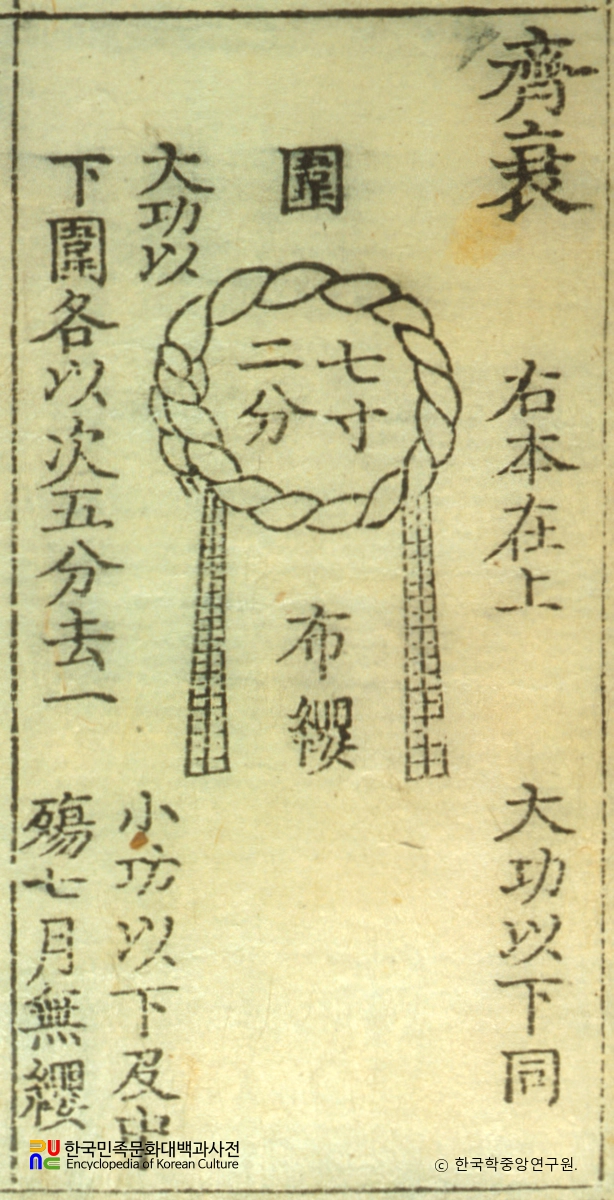 齊衰
右本在上
大功以下同
圍
七寸
二分
布纓
大功以
下圍各以次五分去一
小功以下及中
殤七月無纓
한국민족문화대백과사전
Encyclopedia of Korean Culture
ⓒ 한국학중앙연구원.